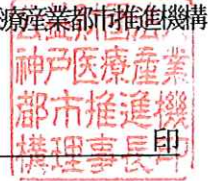 療産業都市推進機構
神戸医療産業
都市推進機
構理事長印
印